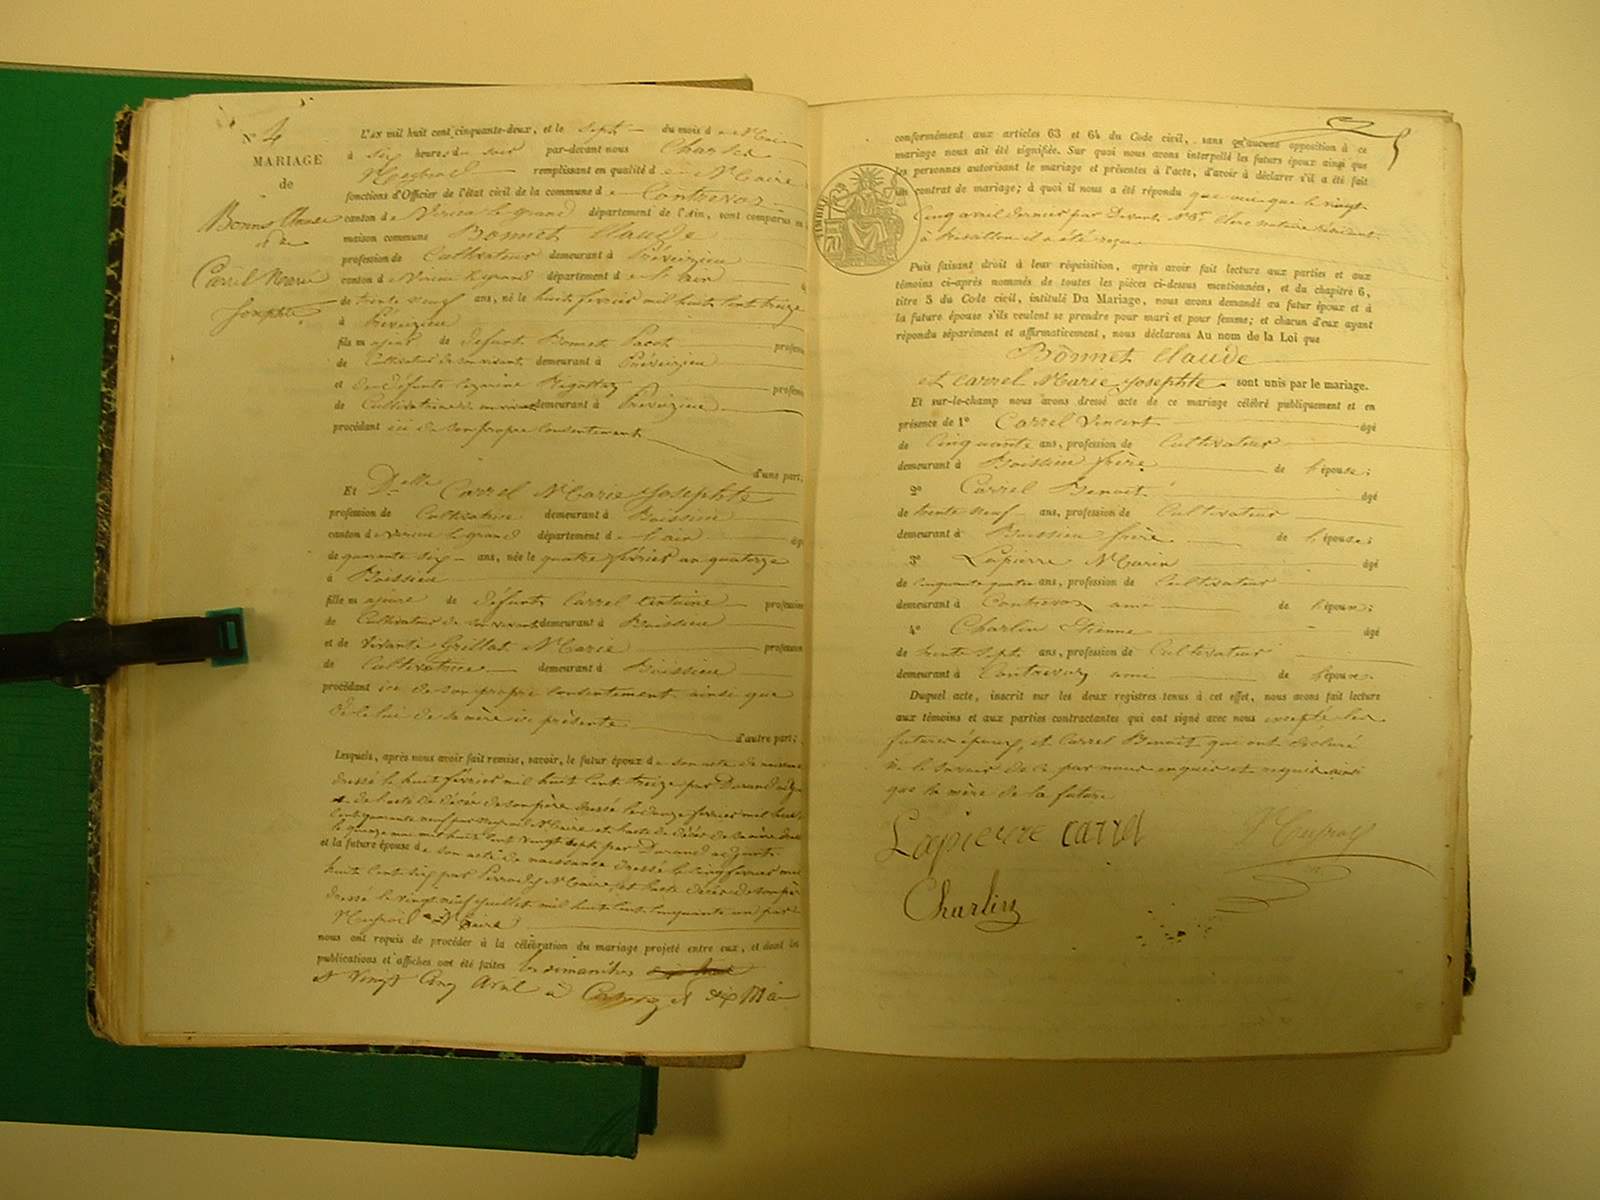 N° 4
MARIAGE
de
Bonnet Claude
et de
Carrel Marie
Josephte
L'AN mil huit cent cinquante-deux, et le sept du mois de Mai
à six heures du soir par-devant nous Charles
remplissant en qualité de Maire
fonctions d'Officier de l'état civil de la commune de Contrevoz
canton de Virieu le grand département de l'Ain, sont comparus en
maison commune Bonnet Claude
profession de Cultivateur demeurant à Préveyzieu
canton de Virieu le grand département de l'ain
de trente neuf ans, né le huit février mil huit cent treize
à Préveyzieu
fils majeur de défunt Bonnet professi
de Cultivateur de son vivant demeurant à Préveyzieu
et de défunte professi
de Cultivatrice de son vivant demeurant à Préveyzieu
procédant ici de son propre consentement
d'une part,
Et Delle Carrel Marie Josephte
profession de Cultivatrice demeurant à Boissieu
canton de Virieu le grand département de l'ain
de quarante six ans, née le quatre février an quatorze
à Boissieu
fille majeure de défunt Carrel Antoine profession
de Cultivateur de son vivant demeurant à Boissieu
et de vivante Grillat Marie profession
de Cultivatrice demeurant à Boissieu
procédant ici de son propre consentement ainsi que
de celui de sa mère ici présente
d'autre part;
Lesquels, après nous avoir fait remise, savoir, le futur époux de son acte de naissance
dressé le huit février mil huit cent treize par Durand adjoint
et de l'acte de décès de son père dressé le douze février mil huit
cent quarante neuf par Maire et l'acte de décès de sa mère dressé
le quinze mai mil huit cent vingt sept par Durand adjoint
et la future épouse de son acte de naissance dressé le cinq février mil
huit cent six par Maire, et l'acte décès de son père
dressé le vingt neuf juillet mil huit cent cinquante un par
Maire
nous ont requis de procéder à la célébration du mariage projeté entre eux, et dont les
publications et affiches ont été faites les dimanches
et Vingt Cinq Avril à et dix Mai
conformément aux articles 63 et 64 du Code civil, sans qu'aucune opposition à ce
mariage nous ait été signifiée. Sur quoi nous avons interpellé les futurs époux ainsi que
les personnes autorisant le mariage et présentes à l'acte, d'avoir à déclarer s'il a été fait
un contrat de mariage; à quoi il nous a été répondu que oui que le vingt
Cinq avril dernier par Devant Me notaire résidant
à il a été reçu
TIMBRE
Puis faisant droit à leur réquisition, après avoir fait lecture aux parties et aux
témoins ci-après nommés de toutes les pièces ci-dessus mentionnées, et du chapitre 6,
titre 5 du Code civil, intitulé Du Mariage, nous avons demandé au futur époux et à
la future épouse s'ils veulent se prendre pour mari et pour femme; et chacun d'eux ayant
répondu séparément et affirmativement, nous déclarons Au nom de la Loi que
Bonnet Claude
et Carrel Marie Josephte sont unis par le mariage.
Et sur-le-champ nous avons dressé acte de ce mariage célébré publiquement et en
présence de 1° Carrel Vincent âgé
de Cinquante ans, profession de Cultivateur
demeurant à Boissieu frère de l'épouse;
2° Carrel Benoit âgé
de trente neuf ans, profession de Cultivateur
demeurant à Boissieu frère de l'épouse;
3° Lapierre Marin âgé
de Cinquante quatre ans, profession de Cultivateur
demeurant à Contrevoz ami de l'époux;
4° Charlin Etienne âgé
de trente sept ans, profession de Cultivateur
demeurant à Contrevoz ami de l'époux.
Duquel acte, inscrit sur les deux registres tenus à cet effet, nous avons fait lecture
aux témoins et aux parties contractantes qui ont signé avec nous excepté les
futurs époux, et Carrel Benoit qui ont déclaré
ne le savoir de ce par nous enquis et requis ainsi
que la mère de la future
Lapierre Carrel
Charlin